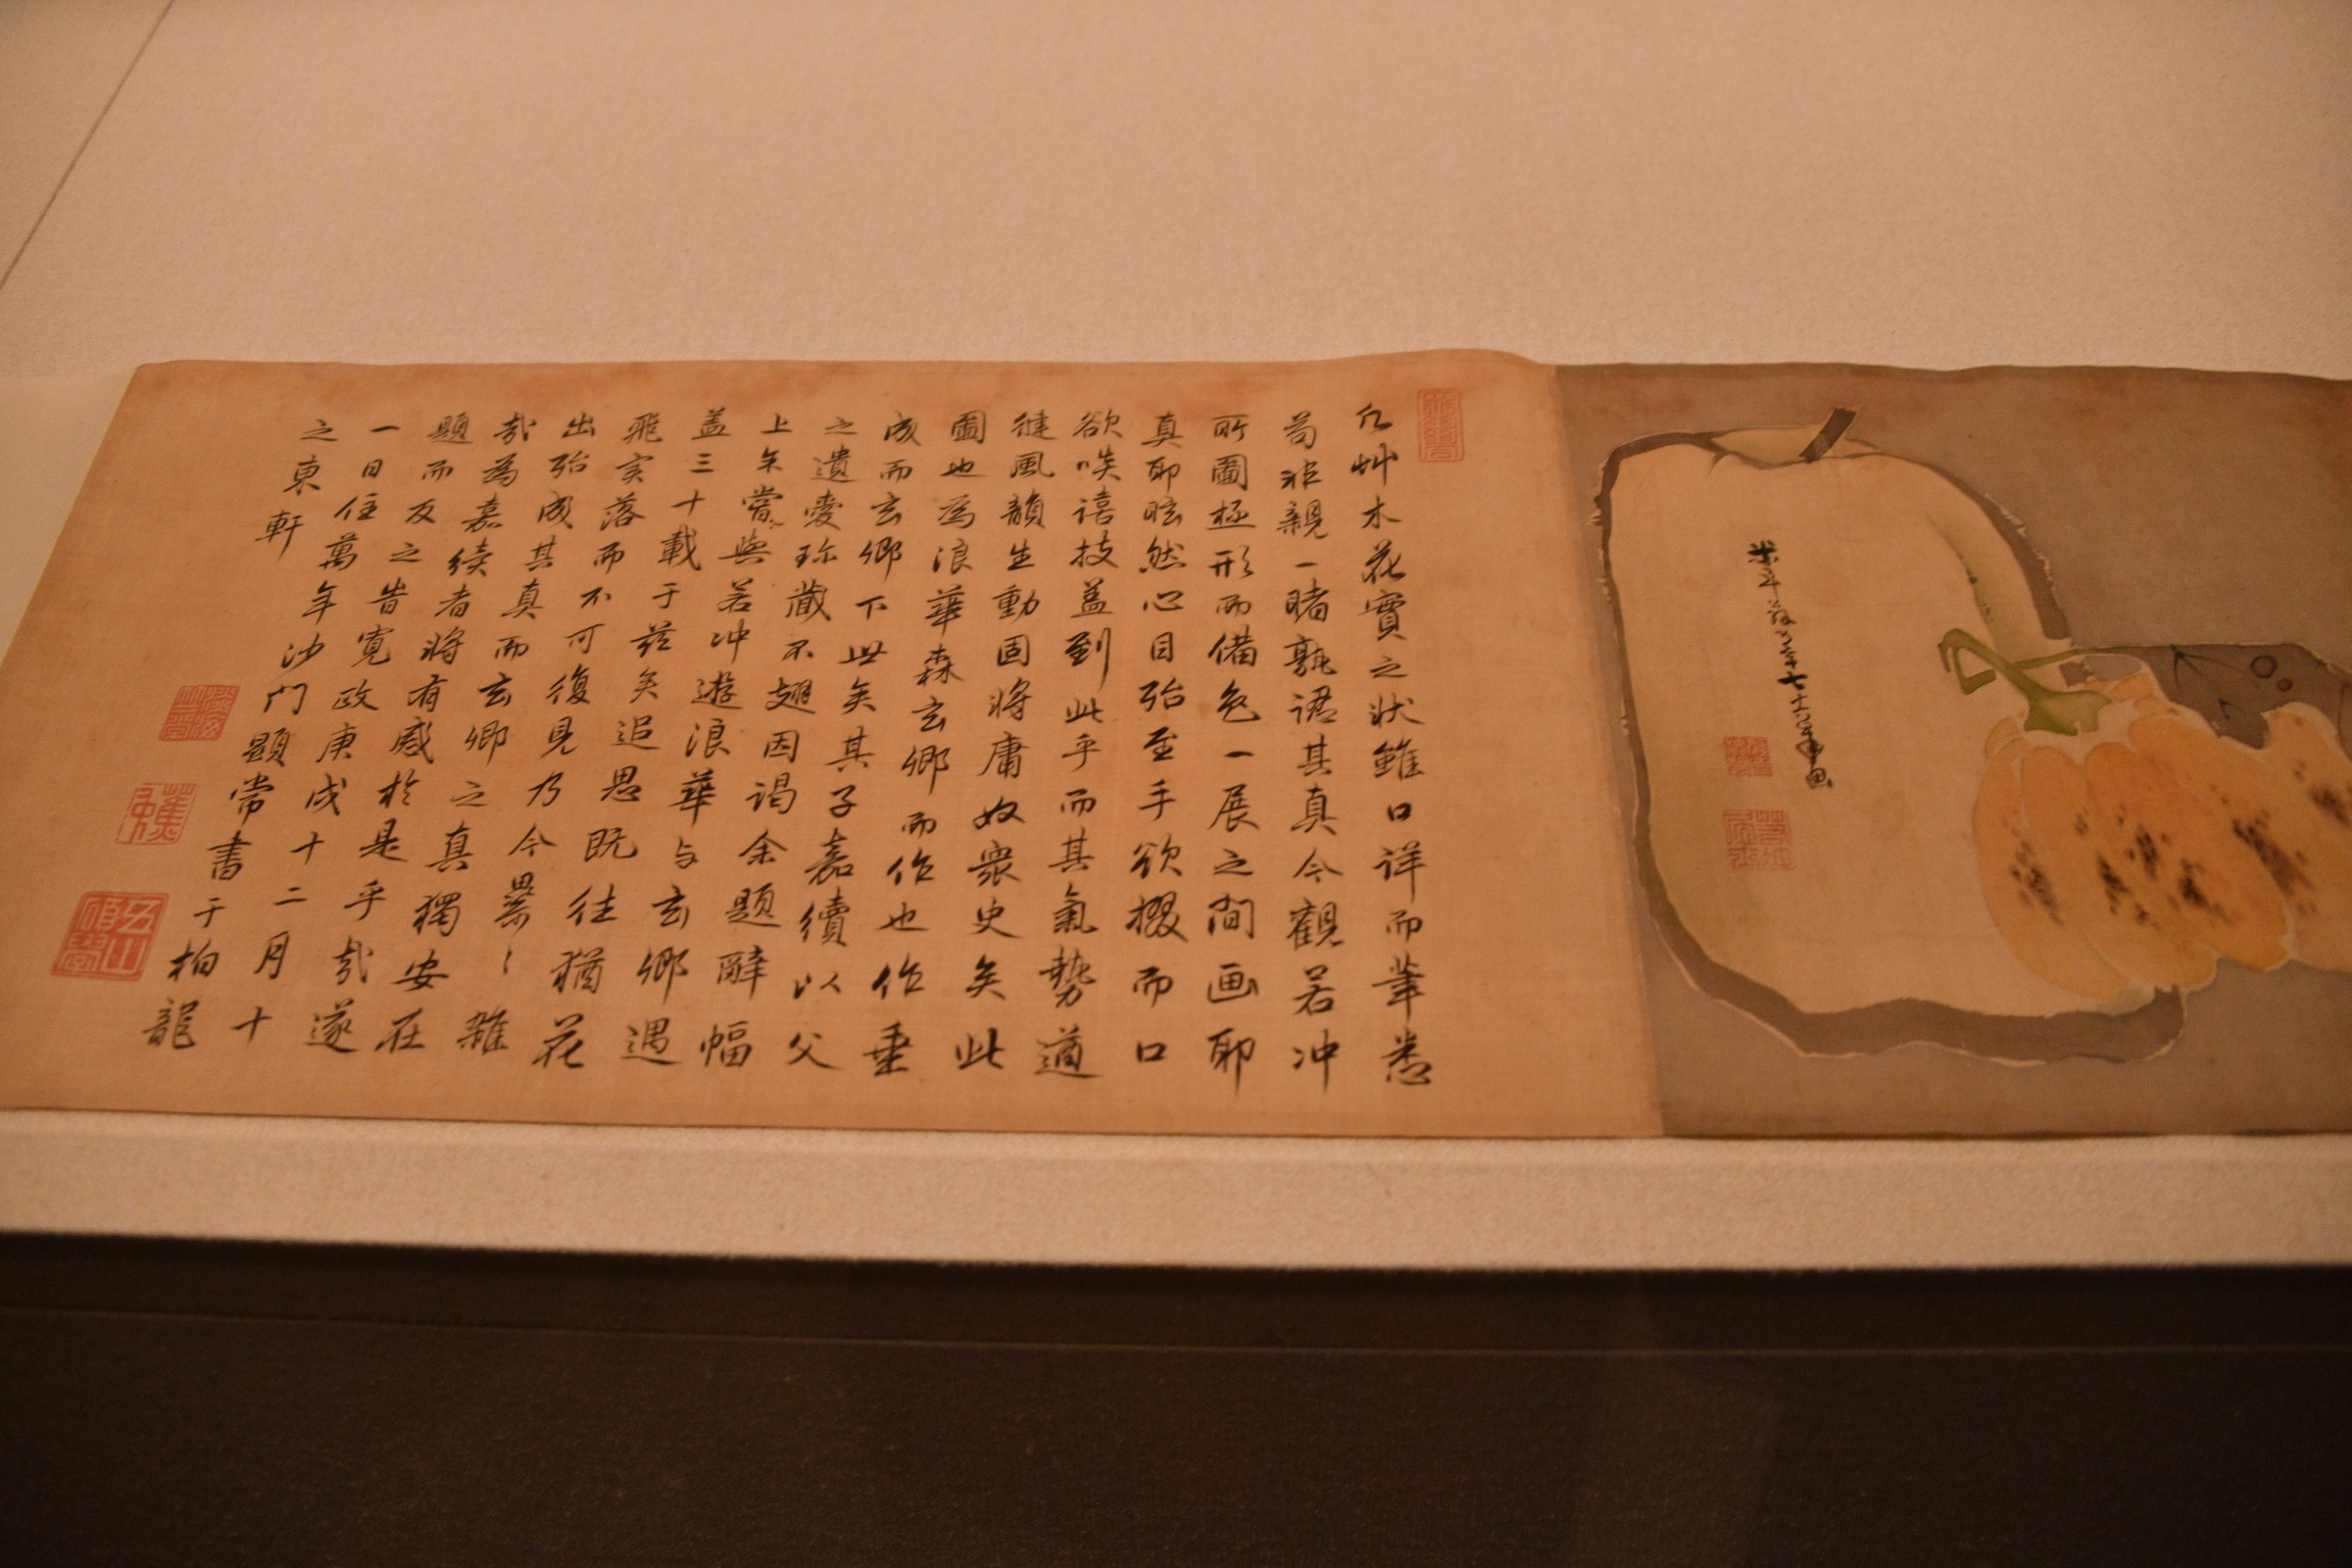 米斗翁行年七十六歳画
凡艸木花實之状雖口詳而筆悉
苟非親一睹孰諳其真今観若冲
所圖極形而備色一展之間画耶
真耶眩然心目殆至手欲掇而口
欲啖譆技盖到此乎而其氣勢遒
徤風韻生動固将庸奴衆史矣此
圖也為浪華森玄卿而作也作垂
成而玄卿下世矣其子嘉續以父
之遺愛珎蔵不翅因謁余題辭幅
上余嘗與若冲遊浪華与玄卿遇
盖三十載于茲矣追思既往猶花
飛実落而不可復見乃今累〻雖
出殆成其真而玄卿之真獨安在
哉為嘉續者将有感於是乎哉遂
題而反之旹寛政庚戌十二月十
一日住萬年沙門顕常書于柏龍
之東軒